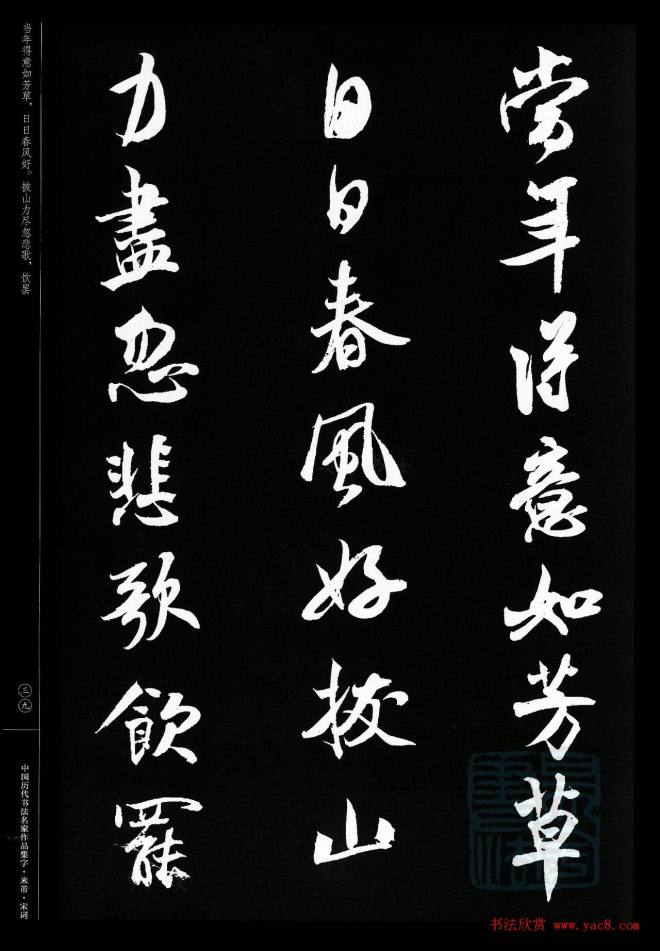 當年得意如芳草
日日春風好拔山
力盡忽悲歌飲罷
当年得意如芳草，日日春风好。拔山力尽忽悲歌，饮罢
三九
中国历代书法名家作品集字·米芾·宋词
书法欣赏 www.yac8.com